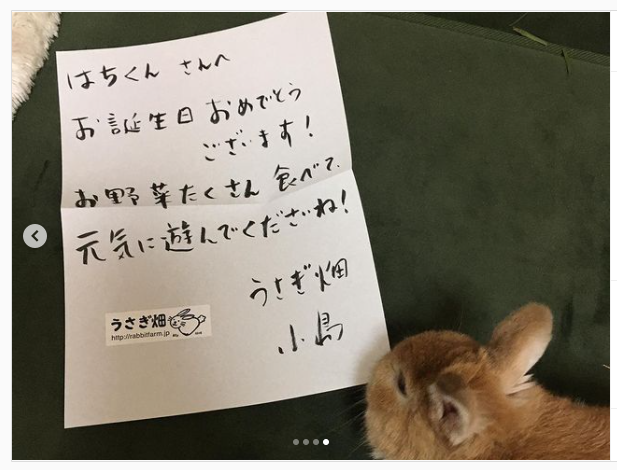 はちくん さんへ
お誕生日 おめでとう
ございます！
お野菜たくさん 食べて、
元気に遊んでくださいね！
うさぎ畑
小島
うさぎ畑
http://rabbitfarm.jp